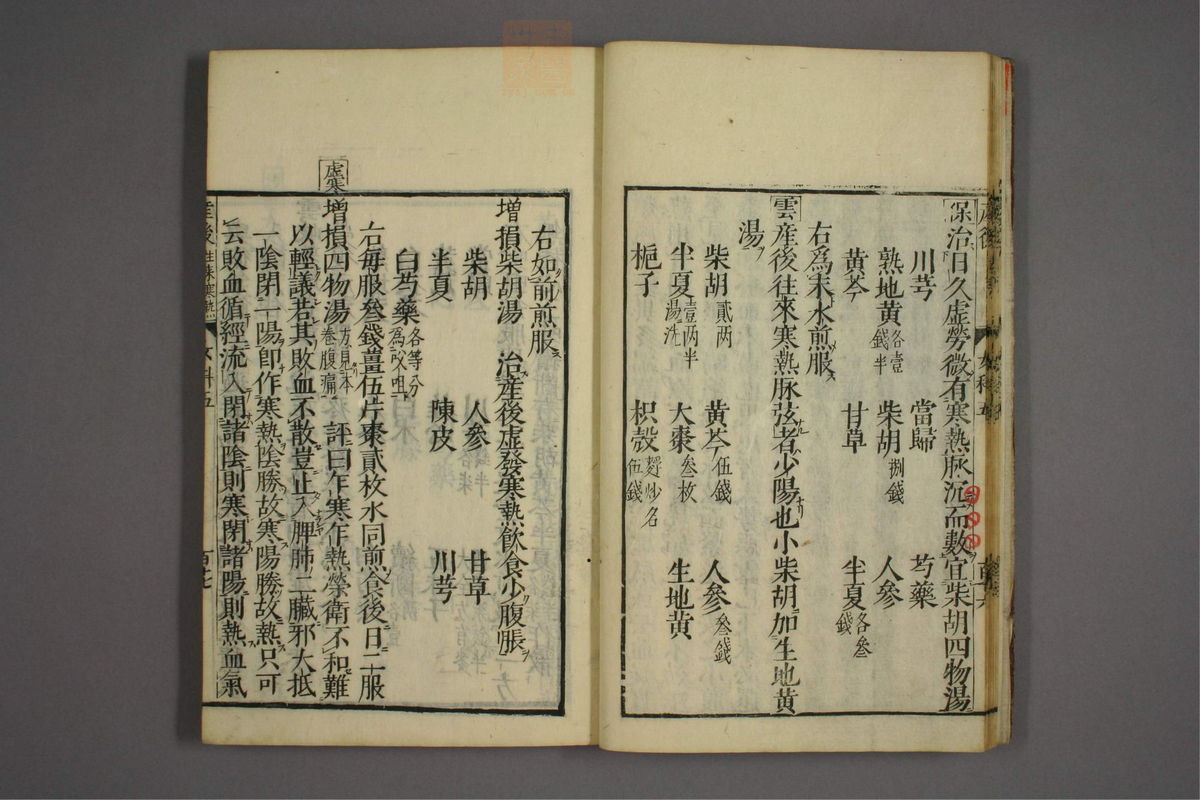 保治日久虚勞微有寒熱脉沉而數宜柴胡四物湯
川芎 當歸 芍藥
熟地黄各壹錢半 柴胡捌錢 人參
黄芩 甘草 半夏各叄錢
右爲末水煎服
雲産後往來寒熱脉弦者少陽也小柴胡加生地黄
湯
柴胡貳两 黄芩伍錢 人參叄錢
半夏壹两半湯洗 大棗叄枚 生地黄
梔子 枳殼麩炒各伍錢
右如前煎服
増損柴胡湯 治産後虚發寒熱飲食少腹脹
柴胡 人參 甘草
半夏 陳皮 川芎
白芍藥各等分爲㕮咀
右毎服叄錢薑伍片棗貳枚水同煎食後日二服
虚寒
増損四物湯方見本卷腹痛 評曰乍寒乍熱榮衛不和難
以輕議若其敗血不散豈止入脾肺二臟邪大抵
一陰閉二陽即作寒熱陰勝故寒陽勝故熱只可
云敗血循經流入閉諸陰則寒閉諸陽則熱血氣
産後 女科五